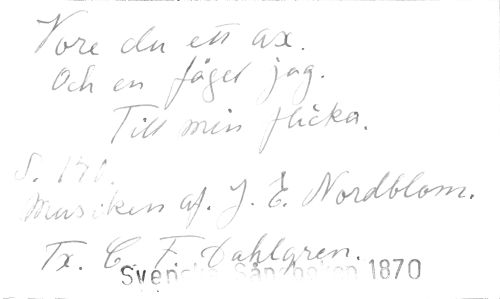 Vore du ett ax.
Och en fågel jag.
Till min flicka.
S. 170.
Musiken af. J. E. Nordblom.
Tx. C. F. Dahlgren.
Svenska Sångboken 1870